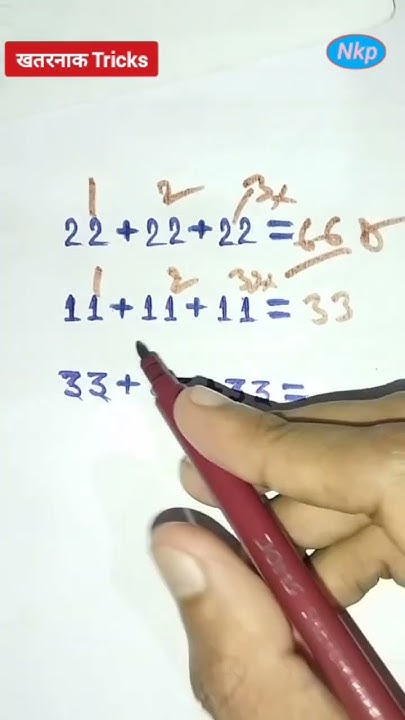 खतरनाक Tricks
Nkp
1 2 3x
22+22+22=66
1 2 3x
11+11+11=33
33+ 33=